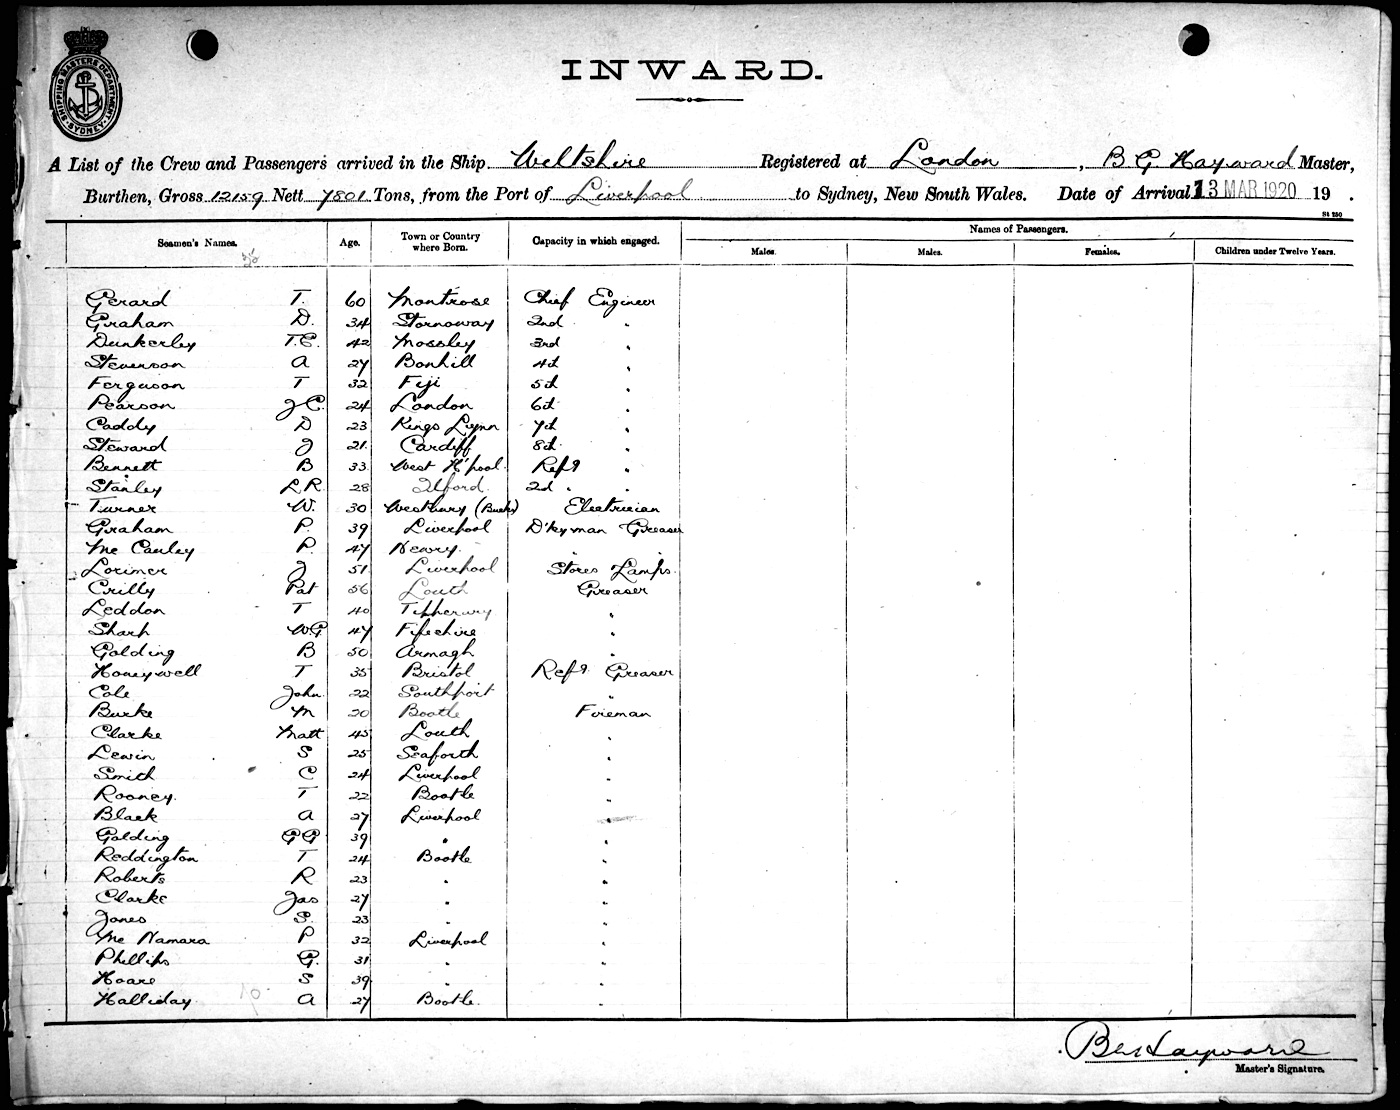 SHIPPING MASTERS DEPARTMENT
SYDNEY
INWARD.
A List of the Crew and Passengers arrived in the Ship Wiltshire Registered at London, B G Hayward Master,
Burthen, Gross 12159 Nett 7801 Tons, from the Port of Liverpool to Sydney, New South Wales. Date of Arrival 13 MAR 1920 19 .
St 250
Seamen's Names. Age. Town or Country where Born. Capacity in which engaged. Names of Passengers.
Males. Males. Females. Children under Twelve Years.
Gerard T. 60 Montrose Chief Engineer
Graham D. 34 Stornoway 2nd "
Dunkerley T.E. 42 Mossley 3rd "
Stevenson A 27 Bonhill 4th "
Ferguson T 32 Fiji 5th "
Pearson J C. 24 London 6th "
Caddy D 23 Kings Lynn 7th "
Steward J 21 Cardiff 8th "
Bennett B 33 West H'pool Refg "
Stanley L.R. 28 Ilford 2d " "
Turner W. 30 Westbury (Bucks) Electrician
Graham P. 39 Liverpool D'kyman Greaser
Mc Cauley P. 47 Newry " "
Lorimer J 51 Liverpool Stores Lamps
Crilly Pat 56 Louth Greaser
Leddon T 40 Tipperary "
Sharp W.G 47 Fifeshire "
Golding B 50 Armagh "
Honeywell T 35 Bristol Refg Greaser
Cole John 22 Southport "
Burke M 20 Bootle Fireman
Clarke Matt 45 Louth "
Lewin S 25 Seaforth "
Smith C 24 Liverpool "
Rooney T 22 Bootle "
Black A 27 Liverpool "
Golding G G 39 " "
Reddington T 24 Bootle "
Roberts R 23 " "
Clarke Jas 27 " "
Jones S. 23 " "
Mc Namara P 32 Liverpool "
Phillips G. 31 " "
Hoare S 39 " "
Halliday A 27 Bootle "
B G Hayward
Master's Signature.